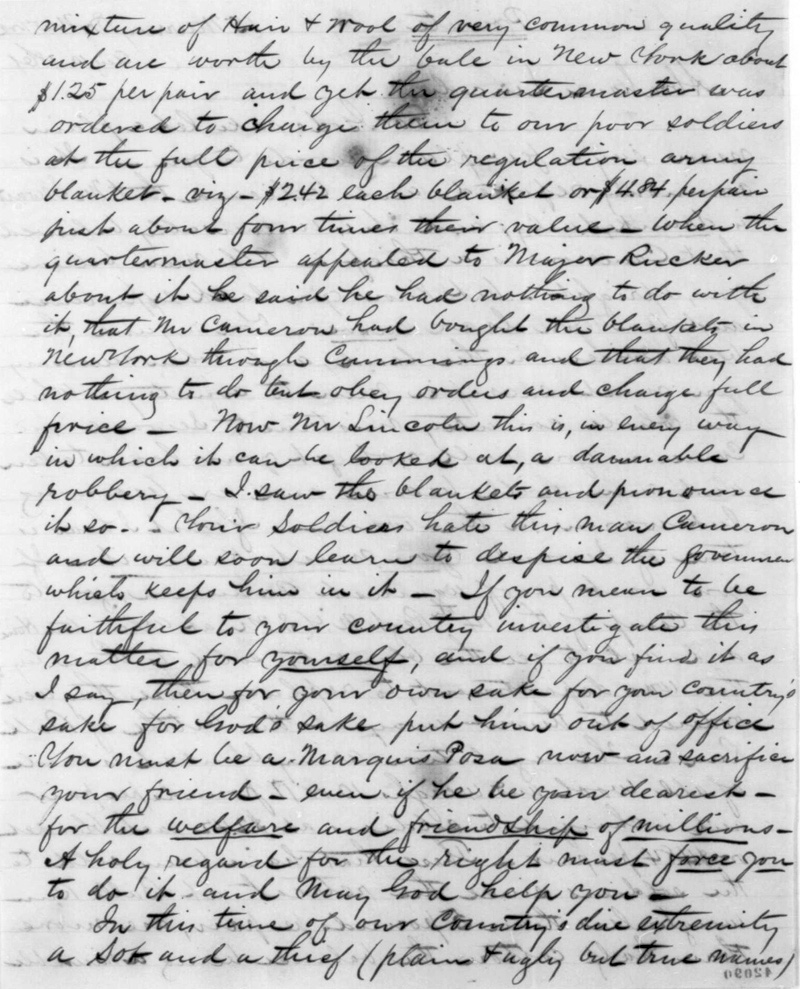 mixture of Hair & Wool of very common quality
and are worth by the bale in New York about
$1.25 per pair and yet the quartermaster was
ordered to charge them to our poor soldiers
at the full price of the regulation army
blanket - viz - $2.42 each blanket or $4.84 per pair
just about four times their value - When the
quartermaster appealed to Major Rucker
about it he said he had nothing to do with
it, that Mr Cameron had bought the blankets in
New York through Cummings and that they had
nothing to do but obey orders and charge full
price - Now Mr Lincoln this is, in every way
in which it can be looked at, a damnable
robbery - I saw the blankets and pronounce
it so - Your Soldiers hate this man Cameron
and will soon learn to despise the Governmen
which keeps him in it - If you mean to be
faithful to your country investigate this
matter for yourself, and if you find it as
I say, then for your own sake for your Country's
sake for God's sake put him out of office
You must be a Marquis Posa now and sacrifice
your friend - even if he be your dearest -
for the welfare and friendship of millions -
A holy regard for the right must force you
to do it and May God help you -
In this time of our Country's dire extremity
a Sot and a thief (plain & ugly but true names)
42090